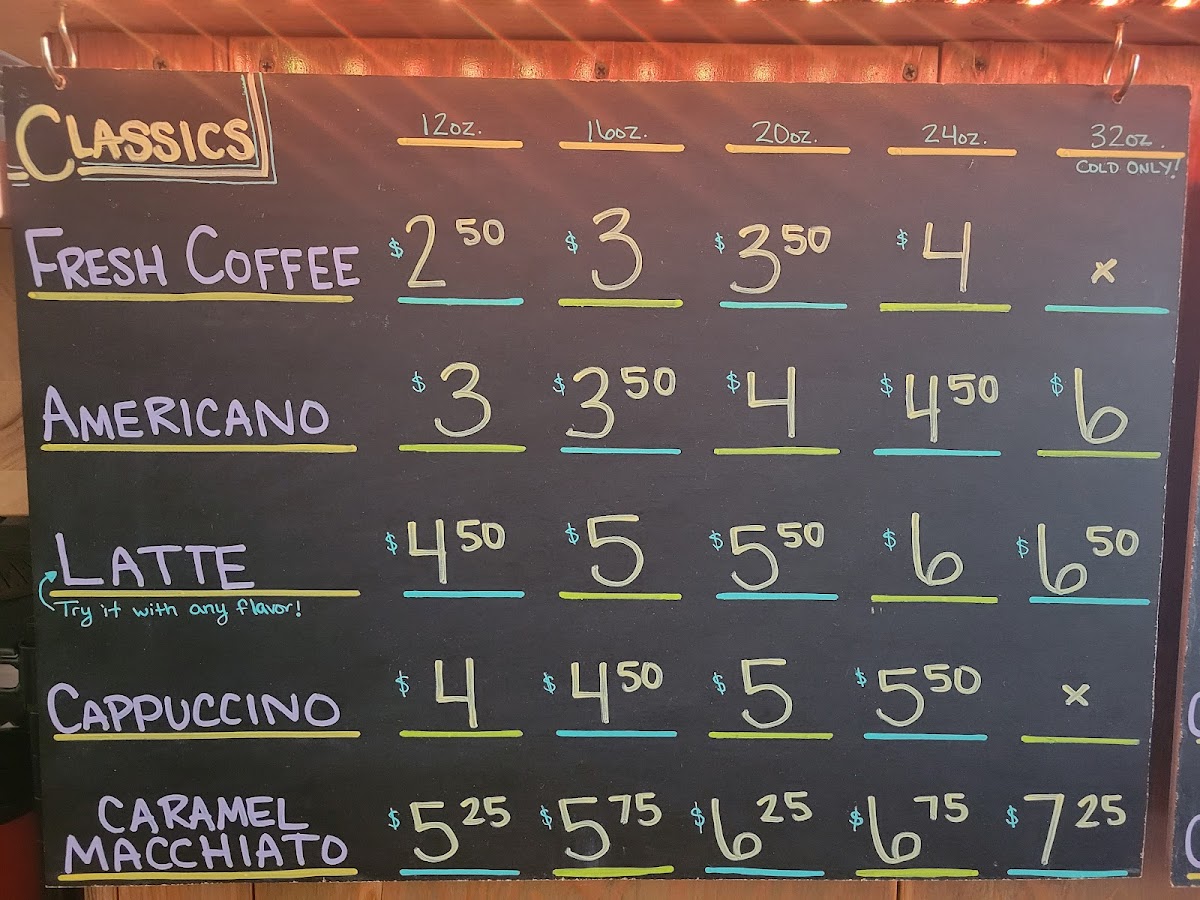 CLASSICS 12oz. 16oz. 20oz. 24oz. 32oz.
COLD ONLY!
FRESH COFFEE $2 50 $3 $3 50 $4 x
AMERICANO $3 $3 50 $4 $4 50 $6
LATTE $4 50 $5 $5 50 $6 $6 50
Try it with any flavor!
CAPPUCCINO $4 $4 50 $5 $5 50 x
CARAMEL
MACCHIATO $5 25 $5 75 $6 25 $6 75 $7 25